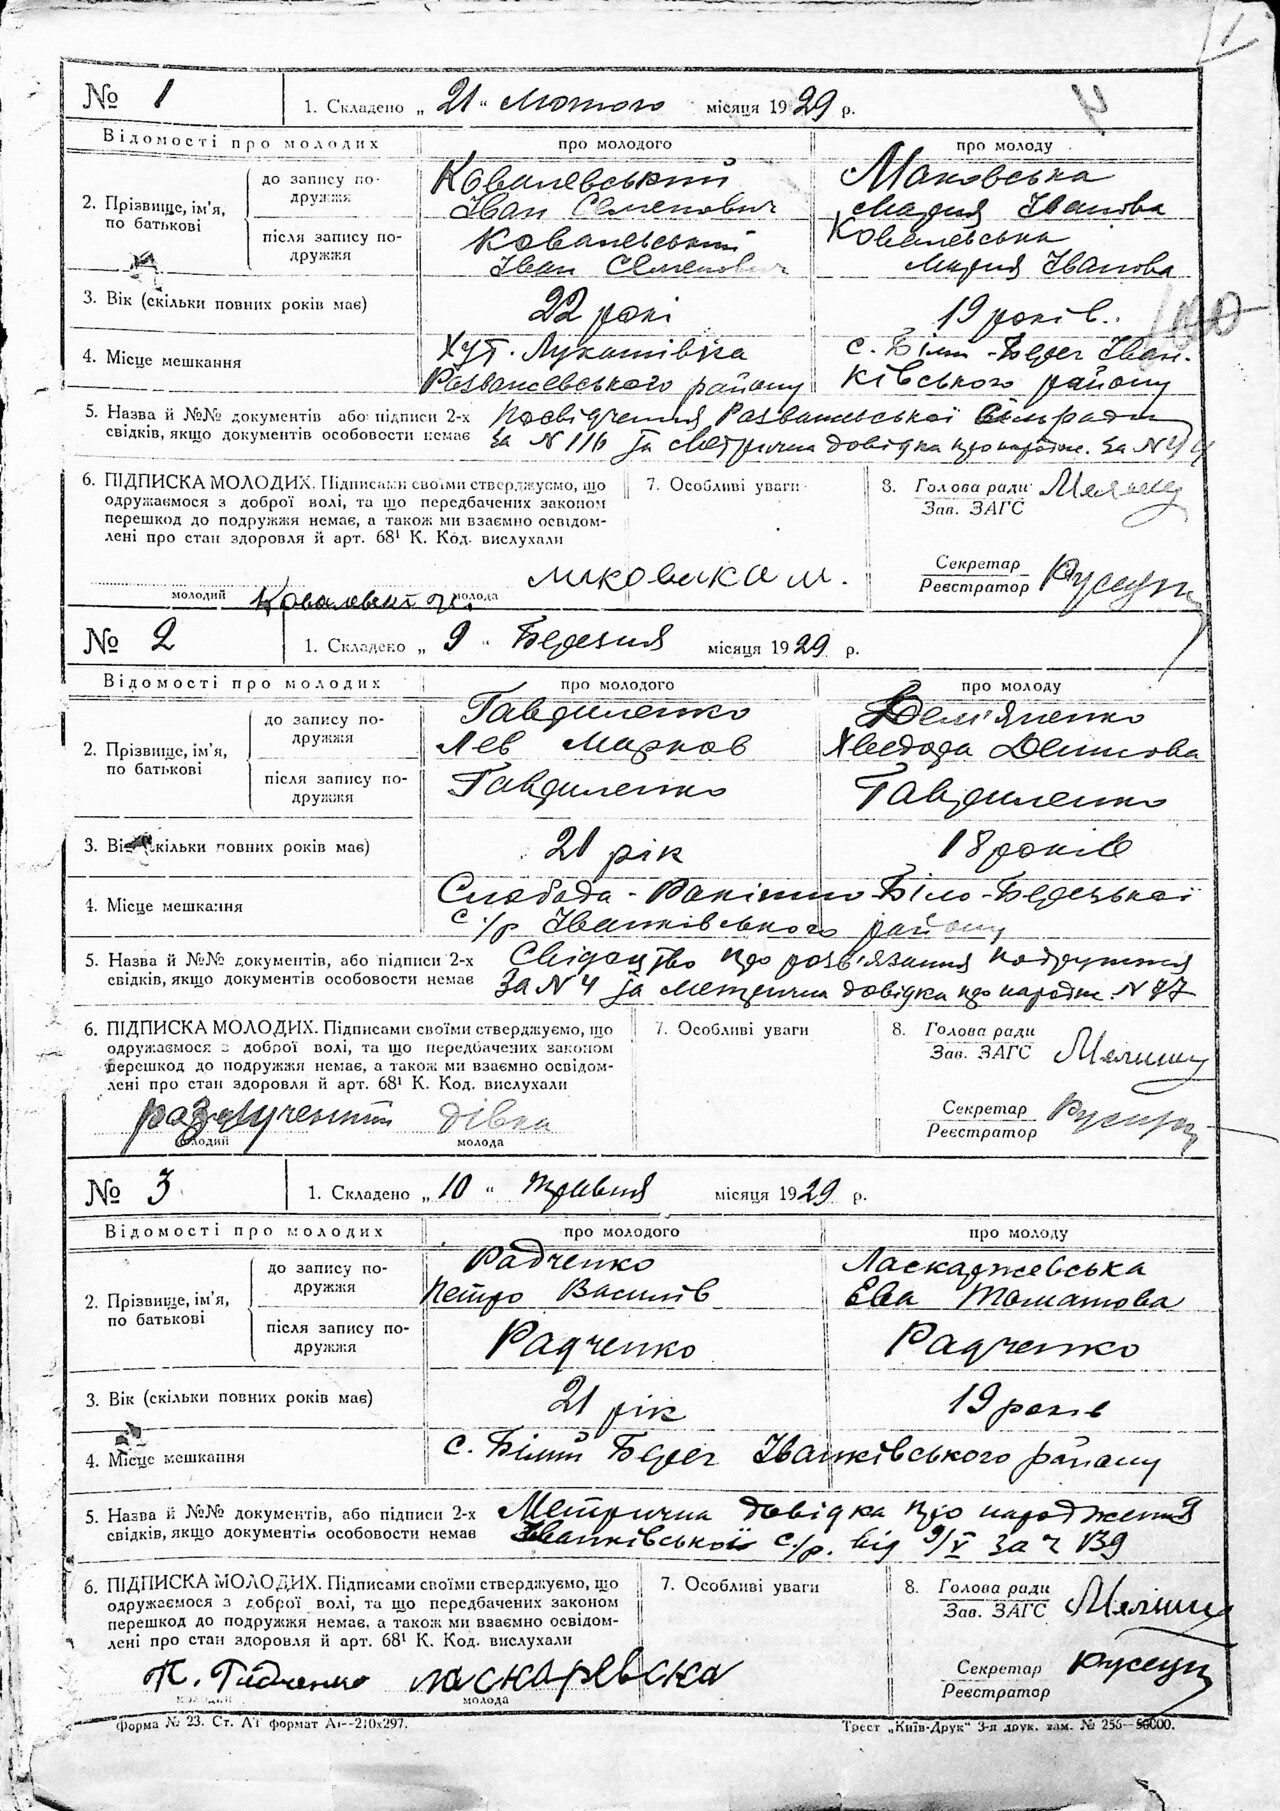 1
№ 1
1. Складено „ 21 “ Лютого місяця 1929 р.
Відомості про молодих
про молодого
про молоду
2. Прізвище, ім'я, по батькові
до запису подружжя
Ковалевський
Іван Семенович
Маковська
Мария Іванова
після запису подружжя
Ковалевський
Іван Семенович
Ковалевська
Мария Іванова
3. Вік (скільки повних років має)
22 рокі
19 років.
4. Місце мешкання
Хут. Лукашівка
Розважевського району
с. Білий-Берег Іван-
ківського району
5. Назва й №№ документів або підписи 2-х
свідків, якщо документів особовости немає
Посвідчення Розважевської сільради
за N 116 та Метрична довідка про народж. за N
6. ПІДПИСКА МОЛОДИХ. Підписами своїми стверджуємо, що
одружаємося з доброї волі, та що передбачених законом
перешкод до подружжя немає, а також ми взаємно освідом-
лені про стан здоровля й арт. 68¹ К. Код. вислухали
7. Особливі уваги
8. Голова ради
Зав. ЗАГС
Секретар
Реєстратор
молодий
молода
№ 2
1. Складено „ 9 “ Березня місяця 1929 р.
Відомості про молодих
про молодого
про молоду
2. Прізвище, ім'я, по батькові
до запису подружжя
Гавриленко
Лев Марков
Дем'яненко
Хведора Денисова
після запису подружжя
Гавриленко
Гавриленко
3. Вік (скільки повних років має)
21 рік
18 років
4. Місце мешкання
Слобода-Рокітно Біло-Березької
с/р Іванківського району
5. Назва й №№ документів, або підписи 2-х
свідків, якщо документів особовости немає
Свідоцтво про розв'язання подружжя
за N 4 та метрична довідка про народж. N
6. ПІДПИСКА МОЛОДИХ. Підписами своїми стверджуємо, що
одружаємося з доброї волі, та що передбачених законом
перешкод до подружжя немає, а також ми взаємно освідом-
лені про стан здоровля й арт. 68¹ К. Код. вислухали
7. Особливі уваги
8. Голова ради
Зав. ЗАГС
Секретар
Реєстратор
дівка
молодий
молода
№ 3
1. Складено „ 10 “ травня місяця 1929 р.
Відомості про молодих
про молодого
про молоду
2. Прізвище, ім'я, по батькові
до запису подружжя
Радченко
Петро Василів
Ласкаржевська
Ева Томашова
після запису подружжя
Радченко
Радченко
3. Вік (скільки повних років має)
21 рік
19 років
4. Місце мешкання
с. Білий Берег Іванківського району
5. Назва й №№ документів, або підписи 2-х
свідків, якщо документів особовости немає
Метрична довідка про народження
Іванківської с/р. від 9/V за ч 139
6. ПІДПИСКА МОЛОДИХ. Підписами своїми стверджуємо, що
одружаємося з доброї волі, та що передбачених законом
перешкод до подружжя немає, а також ми взаємно освідом-
лені про стан здоровля й арт. 68¹ К. Код. вислухали
7. Особливі уваги
8. Голова ради
Зав. ЗАГС
Секретар
Реєстратор
ласкаревска
молодий
молода
Форма № 23. Ст. А1 формат А1--210х297.
Трест „Київ-Друк“ 3-я друк. зам. № 256—50000.